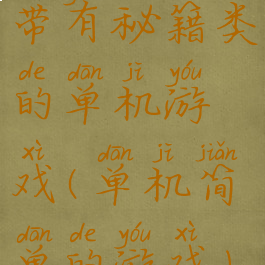 带有秘籍类
de dān jī yóu
的单机游
xì dān jī jiǎn
戏(单机简
dān de yóu xì
单的游戏)